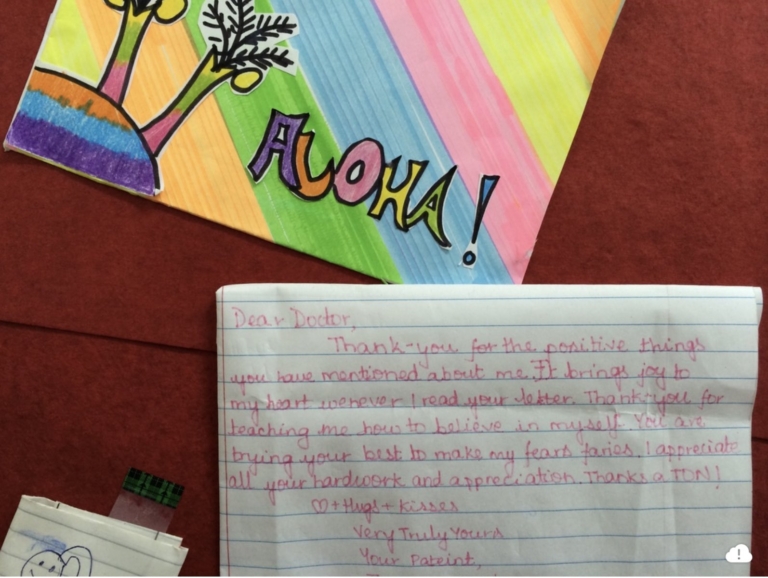 ALOHA!
Dear Doctor,
Thank-you for the positive things
you have mentioned about me. It brings joy to
my heart wenever I read your letter. Thank-you for
teaching me how to believe in myself. You are
trying your best to make my fears faries. I appreciate
all your hardwork and appreciation. Thanks a TON!
♡ + Hugs + Kisses
Very Truly Yours
Your Pateint,